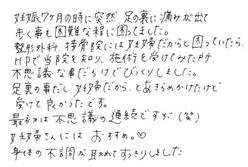 妊娠7ヶ月の時に突然、足の裏に痛みが出て
歩く事も困難な程に困ってました。
整形外科、接骨院には妊婦だからと困っていたら、
HPで当院を知り、施術を受けてみた所、
不思議な事だらけでびっくりしました。
足裏の事だし、妊婦だから、とあきらめかけたけど
受けて良かったです。
最初は不思議の連続ですが(笑)
妊婦さんにはおすすめ。♡
身体の不調が改われてすっきりしました